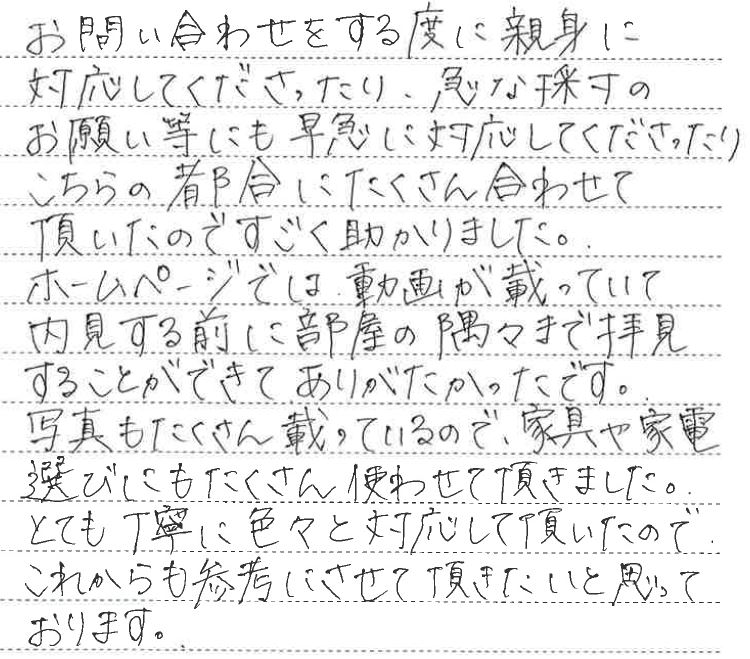 お問い合わせをする度に親身に
対応してくださったり、急な採寸の
お願い等にも早急に対応してくださったり
こちらの都合にたくさん合わせて
頂いたのですごく助かりました。
ホームページでは動画が載っていて
内見する前に部屋の隅々まで拝見
することができてありがたかったです。
写真もたくさん載っているので、家具や家電
選びにもたくさん使わせて頂きました。
とても丁寧に色々と対応して頂いたので
これからも参考にさせて頂きたいと思って
おります。